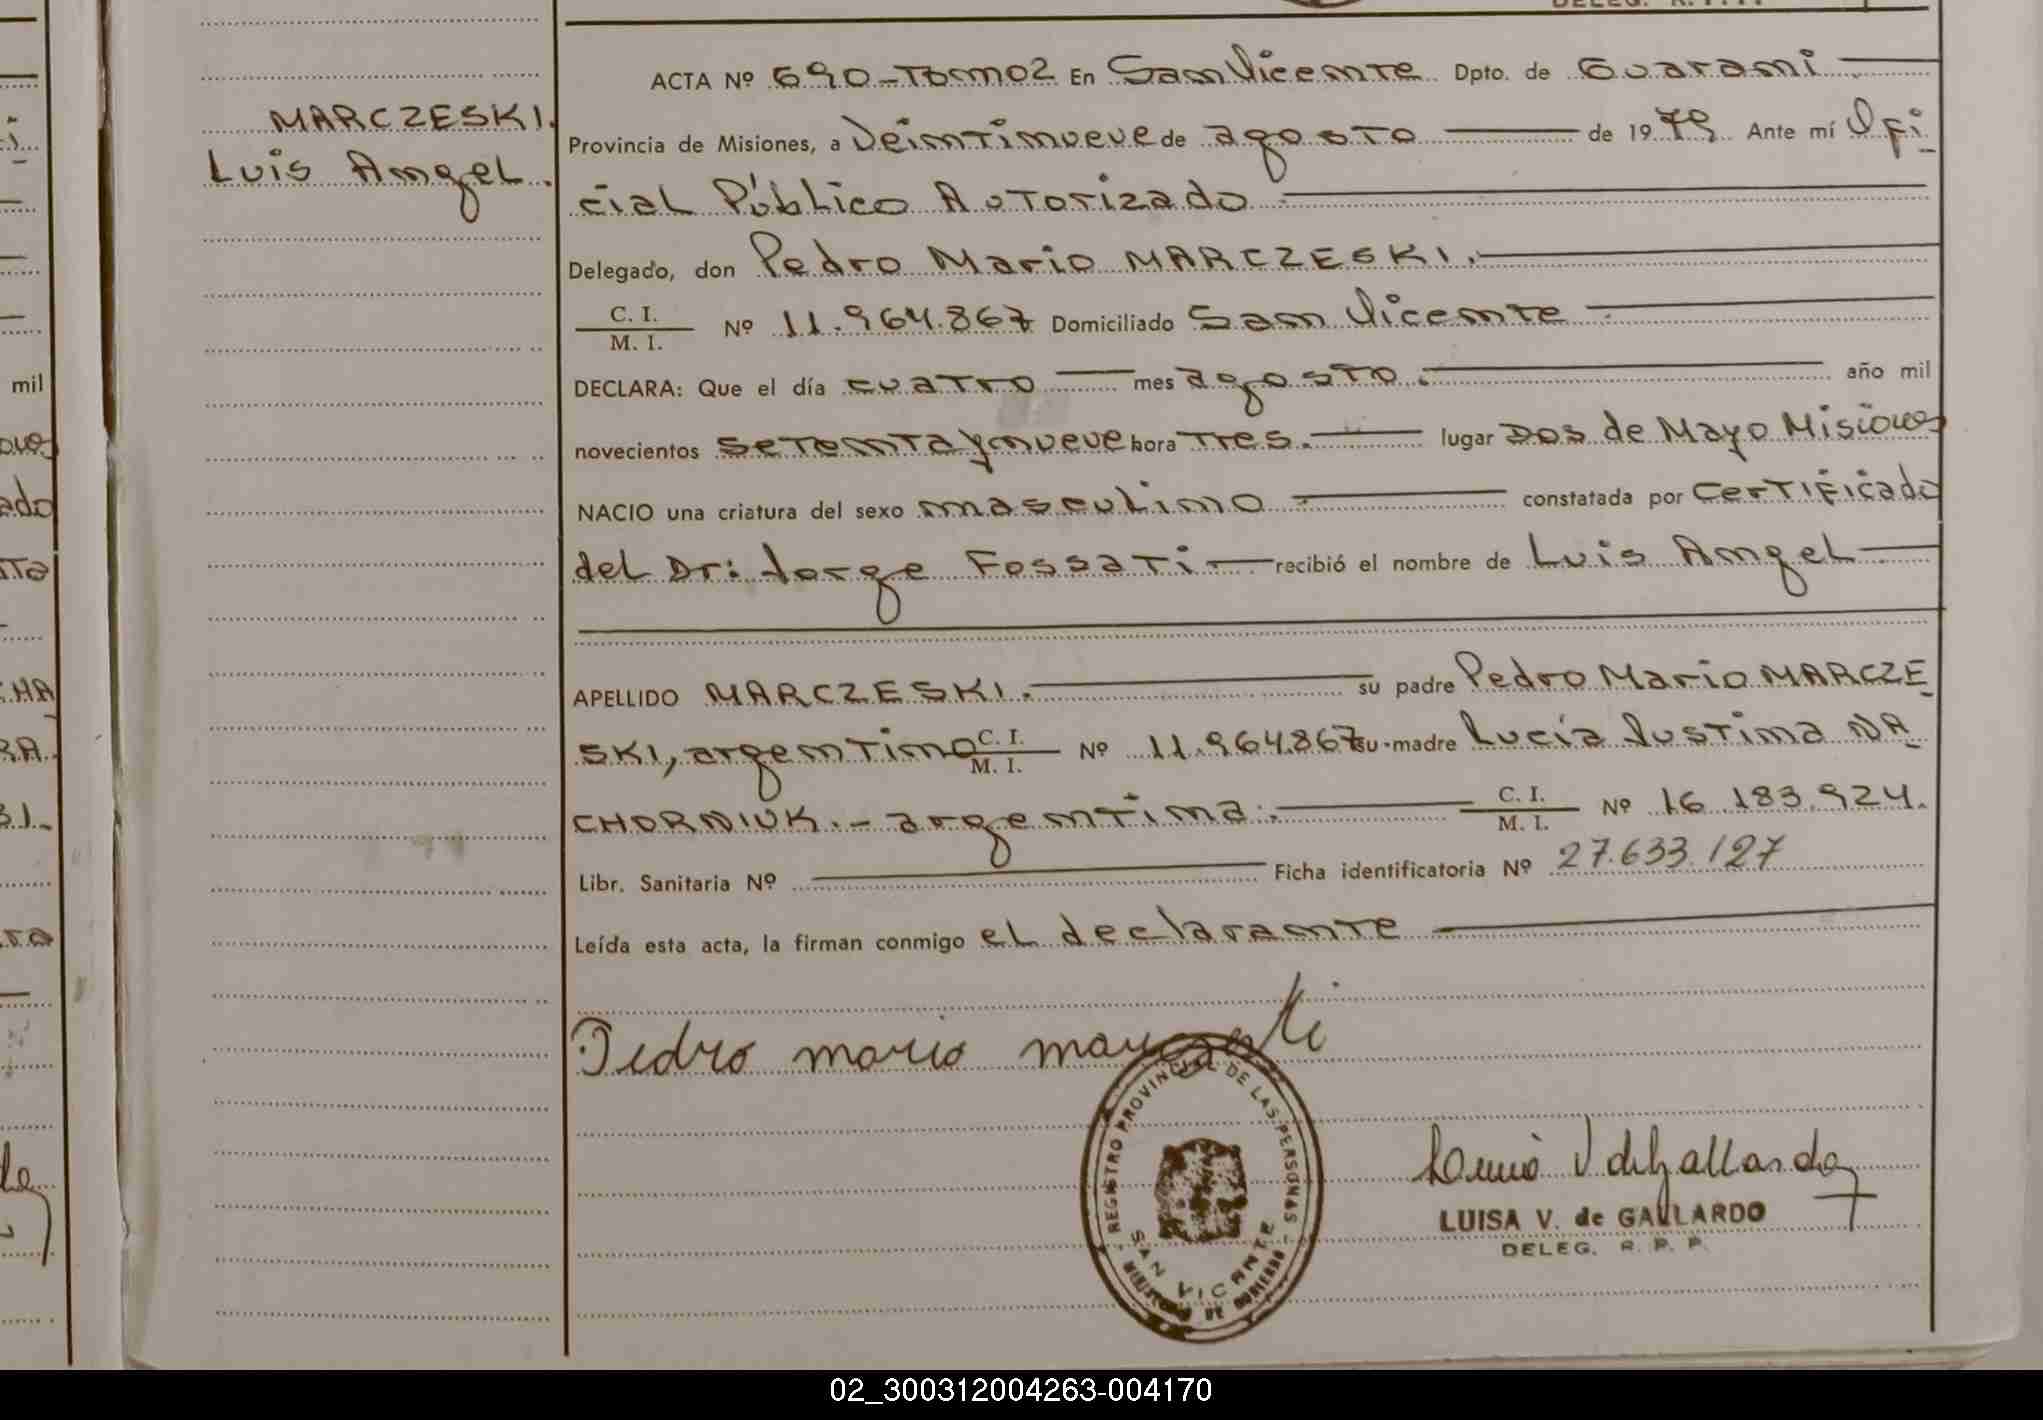 MARCZESKI.
Luis Angel.
ACTA Nº 690-Tomo 2 En San Vicente Dpto. de Guarani
Provincia de Misiones, a Veintinueve de agosto de 1979 Ante mí Ofi
cial Público Autorizado
Delegado, don Pedro Mario MARCZESKI.
C. I.
M. I. Nº 11.964.867 Domiciliado San Vicente
DECLARA: Que el día cuatro mes agosto. año mil
novecientos setenta y nueve hora Tres. lugar Dos de Mayo Misiones
NACIO una criatura del sexo masculino constatada por certificado
del Dr: Jorge Fossati recibió el nombre de Luis Angel
APELLIDO MARCZESKI. su padre Pedro Mario MARCZE
SKI, argentino C. I. M. I. Nº 11.964.867 su madre Lucía Justina NA
CHORNIUK.- argentina. C. I. M. I. Nº 16.183.924.
Libr. Sanitaria Nº Ficha identificatoria Nº 27.633.127
Leída esta acta, la firman conmigo el declarante
Pedro mario marczeski
REGISTRO PROVINCIAL DE LAS PERSONAS
SAN VICENTE
MINISTERIO DE GOBIERNO
LUISA V. de GALLARDO
DELEG. R. P. P.
mil
02_300312004263-004170